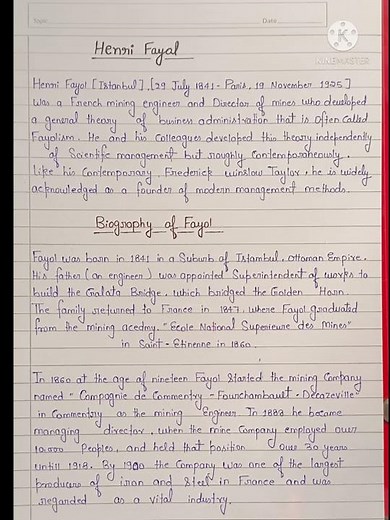 Topic
Date
KINEMASTER
Henri Fayol
Henri Fayol [Istanbul], [29 July 1841 - Paris, 19 November 1925]
was a French mining engineer and Director of mines who developed
a general theory of business administration that is often called
Fayolism. He and his colleagues developed this theory independently
of Scientific management but roughly contemporaneously.
Like his contemporary Frederick Winslow Taylor, he is widely
acknowledged as a founder of modern management methods.
Biography of Fayol
Fayol was born in 1841 in a Suburb of Istambul, ottoman Empire.
His father (an engineer) was appointed Superintendent of works to
build the Galata Bridge, which bridged the Golden Horn.
The family returned to France in 1847, where Fayol graduated
from the mining acedmy. "Ecole National Superieure des Mines"
in Saint-Etinenne in 1860.
In 1860 at the age of nineteen Fayol started the mining Company
named "Compagnie de Commentry - Fourchambault - Decazeville"
in Commentry as the mining Engineer. In 1888 he became
managing director, when the mine Company employed over
10,000 Peoples, and held that position over 30 years
untill 1918. By 1900 the company was one of the largest
producers of iron and steel in France and was
reganded as a vital industry.